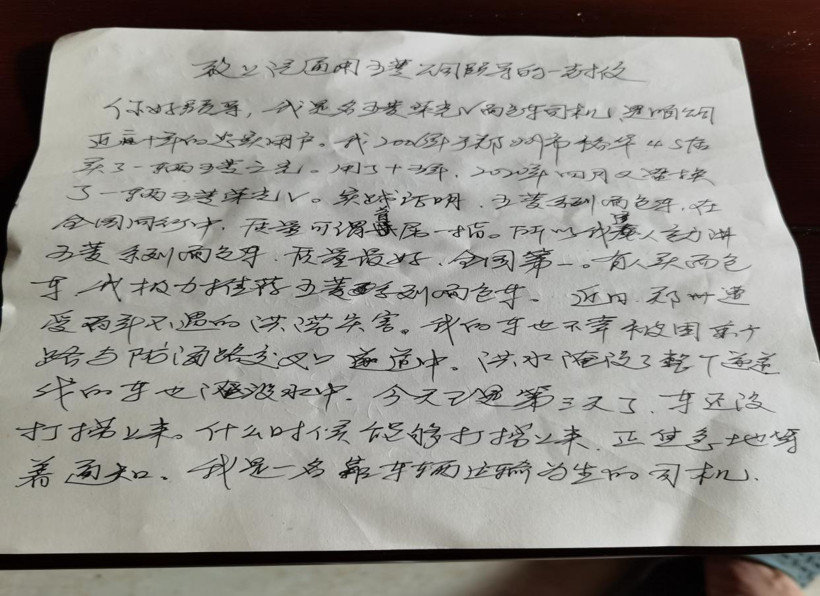 致上汽通用五菱公司领导的一封信
你好领导,我是名五菱荣光V面包车司机,是咱公司
近二十年的忠实用户。我200年于郑州市裕华4S店
买了一辆五菱之光。用了十五年,2020年四月又置换
了一辆五菱荣光V。实践证明,五菱系列面包车,在
全国同行中,质量可谓首屈一指。所以我逢人言必讲
五菱系列面包车,质量最好,全国第一。有人买面包
车,我极力推荐五菱系列面包车。近日,郑州遭
受百年不遇的洪涝灾害。我的车也不幸被困京广
路与陇海路交叉口隧道中。洪水淹没了整个隧道
我的车也淹没水中。今天已是第三天了,车还没
打捞上来。什么时候能够打捞上来,正焦急地等
着通知。我是一名靠车辆运输为生的司机.